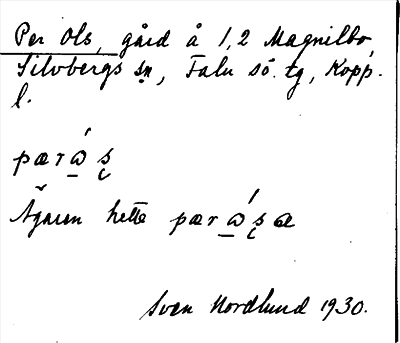 Per Ols, gård å 1,2 Magnilbo,
Silvbergs sn, Falu sö. tg, Kopp.
l.
pærώ̲ ş
Ägaren hette pærώ̲şa
Sven Nordlund 1930.